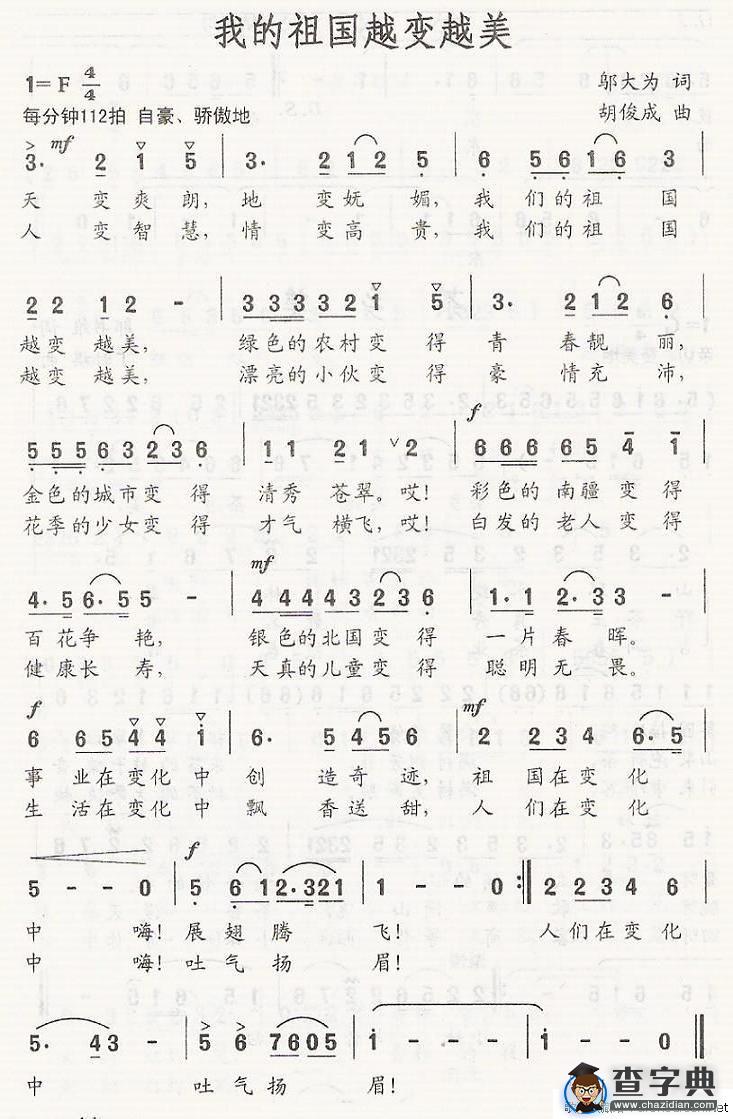 我的祖国越变越美
1=F 4/4
邬大为 词
每分钟112拍 自豪、骄傲地
胡俊成 曲
> mf
3· 2 1 5 | 3· 2 1 2 5 | 6 5 6 1 6 3 |
天 变 爽 朗, 地 变 妩 媚, 我 们 的 祖 国
人 变 智 慧, 情 变 高 贵, 我 们 的 祖 国
2 2 1 2 - | 3 3 3 3 3 2 1 5 | 3· 2 1 2 6 |
越 变 越 美, 绿色的农村变 得 青 春 靓 丽,
越 变 越 美, 漂亮的小伙变 得 豪 情 充 沛,
f
5 5 5 6 3 2 3 6 | 1 1 2 1 V 2 | 6 6 6 6 5 4 1 |
金色的城市变 得 清秀 苍翠。哎! 彩色的 南疆 变 得
花季的少女变 得 才气 横飞,哎! 白发的 老人 变 得
mf
4· 5 6· 5 5 - | 4 4 4 4 3 2 3 6 | 1· 1 2· 3 3 - |
百 花 争 艳, 银色的北国变 得 一 片 春 晖。
健 康 长 寿, 天真的儿童变 得 聪 明 无 畏。
f mf
6 6 5 4 4 i | 6· 5 3 4 5 | 2 2 3 4 6· 5 |
事 业 在 变 化 中 创 造 奇 迹, 祖 国 在 变 化
生 活 在 变 化 中 飘 香 送 甜, 人 们 在 变 化
f
5 - - 0 | 5 6 1 2· 3 2 1 | 1 - - 0 :‖ 2 2 3 4 6 |
中 嗨! 展 翅 腾 飞! 人 们 在 变 化
中 嗨! 吐 气 扬 眉!
5· 4 3 - | 5 6 7 6 0 5 | i - - - | i - - 0 ‖
中 吐 气 扬 眉!
查字典
www.chazidian.com